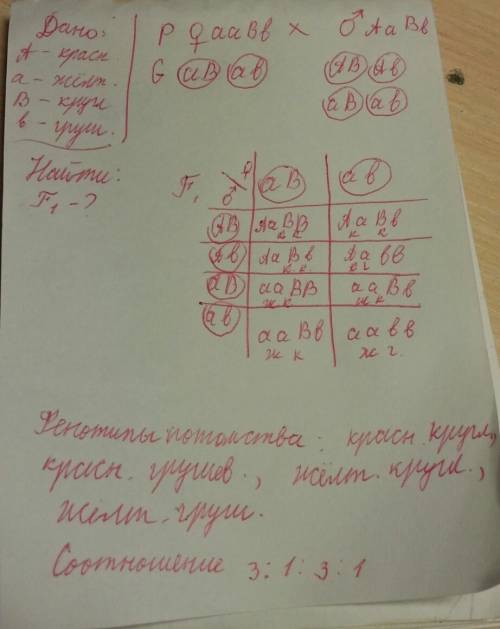 Дано:
А - красн
а - жёлт.
В - кругл
в - груш.
Найти:
F₁ - ?
Р ♀ ааВв × ♂ АаВв
G аВ ав АВ Ав
аВ ав
F₁ ♂ ♀ аВ ав
АВ АаВВ АаВв
к к к к
Ав АаВв Аавв
к к к г
аВ ааВВ ааВв
ж к ж к
ав ааВв аавв
ж к ж г.
Фенотипы потомства: красн. кругл,
красн. грушев., жёлт. кругл.,
жёлт. груш.
Соотношение 3:1:3:1